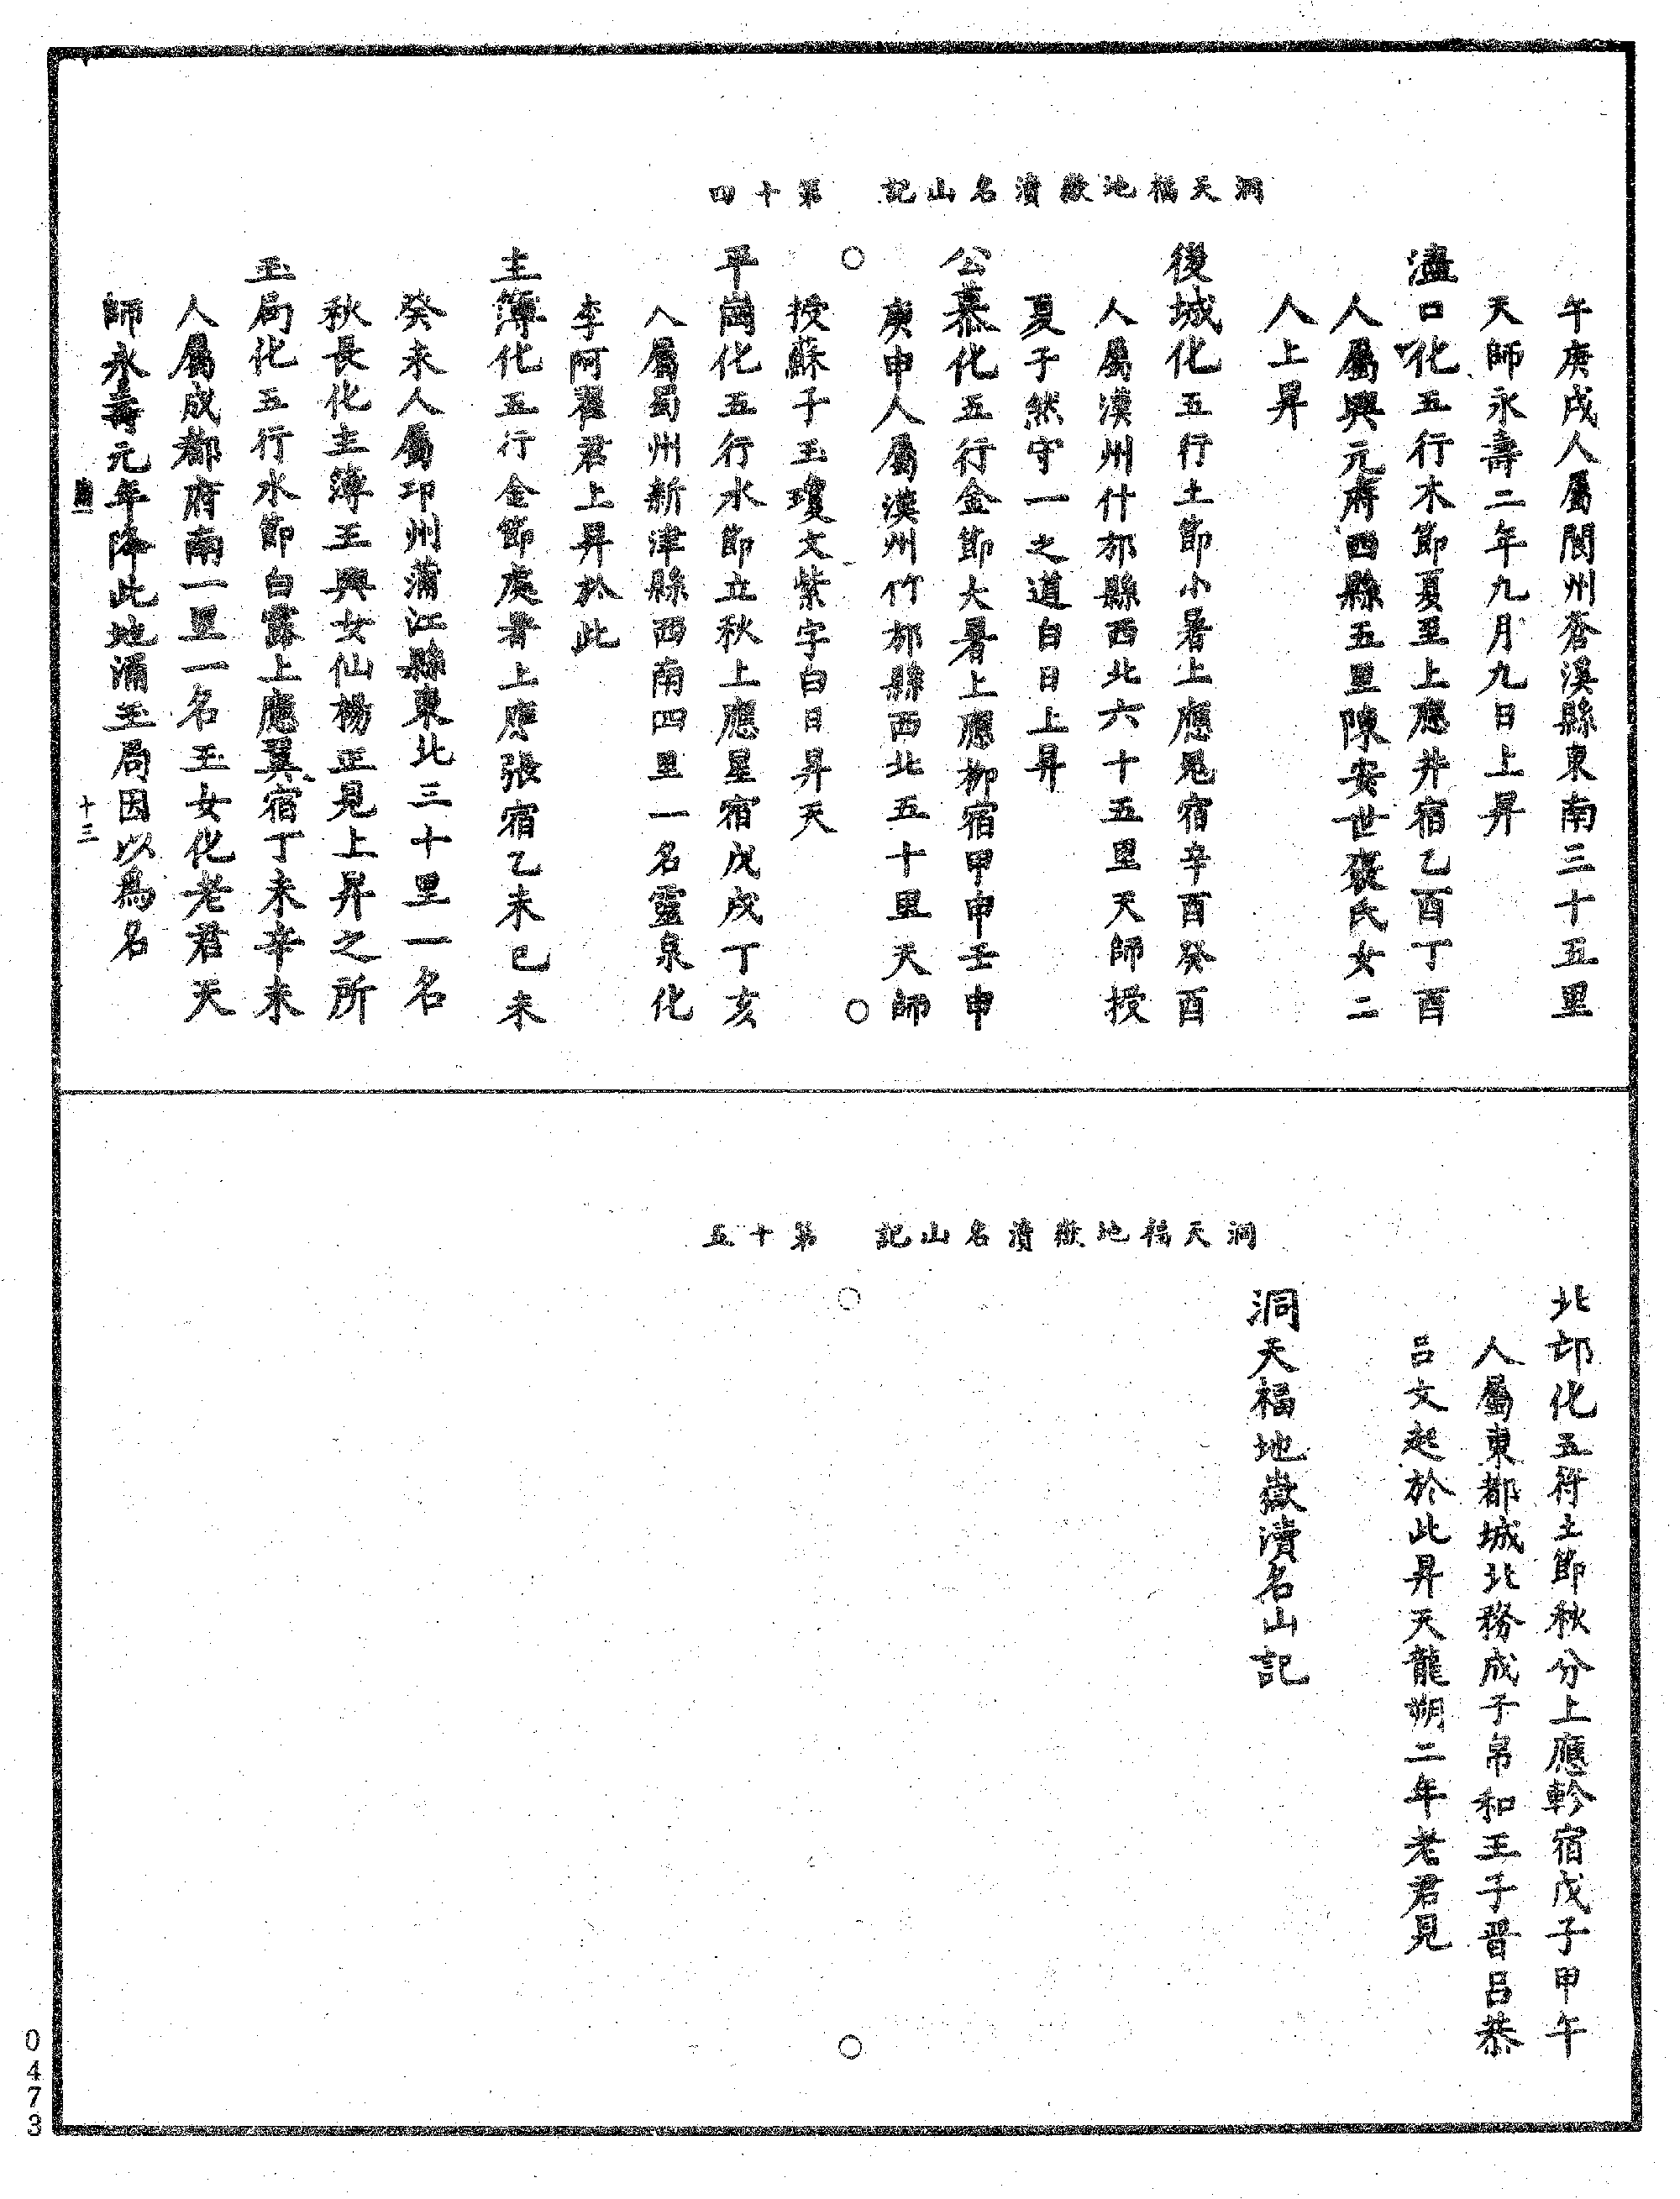 洞天福地嶽瀆名山記　第十四
午庚戌人屬閬州蒼溪縣東南三十五里
天師永壽二年九月九日上昇
湓口化五行木節夏至上應井宿乙酉丁酉
人屬興元府西縣五里陳安世褒氏女二
人上昇
後城化五行土節小暑上應鬼宿辛酉癸酉
人屬漢州什邡縣西北六十五里天師授
夏子然守一之道白日上昇
公慕化五行金節大暑上應柳宿甲申壬申
庚申人屬漢州竹邡縣西北五十里天師
授蘇子玉瓊文紫字白日昇天
平崗化五行水節立秋上應星宿戊戌丁亥
人屬蜀州新津縣西南四里一名靈泉化
李阿翟君上昇於此
主簿化五行金節處暑上應張宿乙未己未
癸未人屬邛州蒲江縣東北三十里一名
秋長化主簿王興女仙楊正見上昇之所
玉局化五行水節白露上應翼宿丁未辛未
人屬成都府南一里一名玉女化老君天
師永壽元年降此地涌玉局因以為名
十三
洞天福地嶽瀆名山記　第十五
北邙化五符土節秋分上應軫宿戊子甲午
人屬東都城北務成子帛和王子晉呂恭
呂文起於此昇天龍朔二年老君見
洞天福地嶽瀆名山記
0473